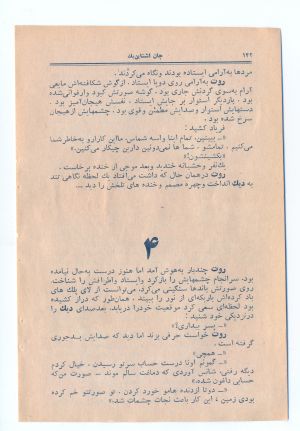 ۱۴۲ جان اشتاین‌بک
مردها به‌آرامی ایستاده بودند ونگاه می‌کردند.
روت به‌آرامی روی دوپا ایستاد. ازگوش شکافته‌اش مایعی
آرام به‌سوی گردنش جاری بود. گوشه صورتش کبود وارغوانی‌شده
بود. باردیگر استوار بر جایش ایستاد. نفسش هیجان‌آمیز بود.
دستهایش استوار وصدایش مطمئن وقوی بود. چشمهایش ازهیجان
سرخ شده بود.
فریاد کشید:
«ـ ببینین، تمام اینا واسه شماس، مااین کارارو به‌خاطرشما
می‌کنیم. تمامشو. شما ها نمی‌دونین دارین چیکار می‌کنین.»
«بکشینشون!»
یک‌نفر وحشیانه خندید وبعد موجی از خنده برخاست.
روت درهمان حال که داشت می‌افتاد یک لحظه نگاهی تند
به دیک انداخت وچهره مصمم وخنده های تلخش را دید ...
۴
روت چندبار به‌هوش آمد اما هنوز درست به‌حال نیامده
بود. سرانجام چشمهایش را بازکرد وایستاد واطرافش را شناخت.
روی صورتش باندها سنگینی می‌کرد. می‌توانست از لای پلک های
باد کرده‌اش باریکه‌ای از نور را ببیند. همان‌طور که دراز کشیده
بود برای لحظه‌ای سعی کرد موقعیت خودرا دریابد. بعدصدای دیک را
درنزدیکی خود شنید:
«ـ پسر بیداری؟»
روت خواست حرفی بزند اما دید که صدایش بدجوری
گرفته است.
«ـ همچی.»
«ـ گمونم اونا درست حساب سرتو رسیدن. خیال کردم
دیگه رفتی، شانس آوردی که دماغت سالم موند ـ صورت می‌که
حسابی داغون شده.»
«ـ دوتا ازدنده هامو خورد کردن. تو صورتتو خم کرده
بودی زمین، این کار باعث نجات چشمات شد.»